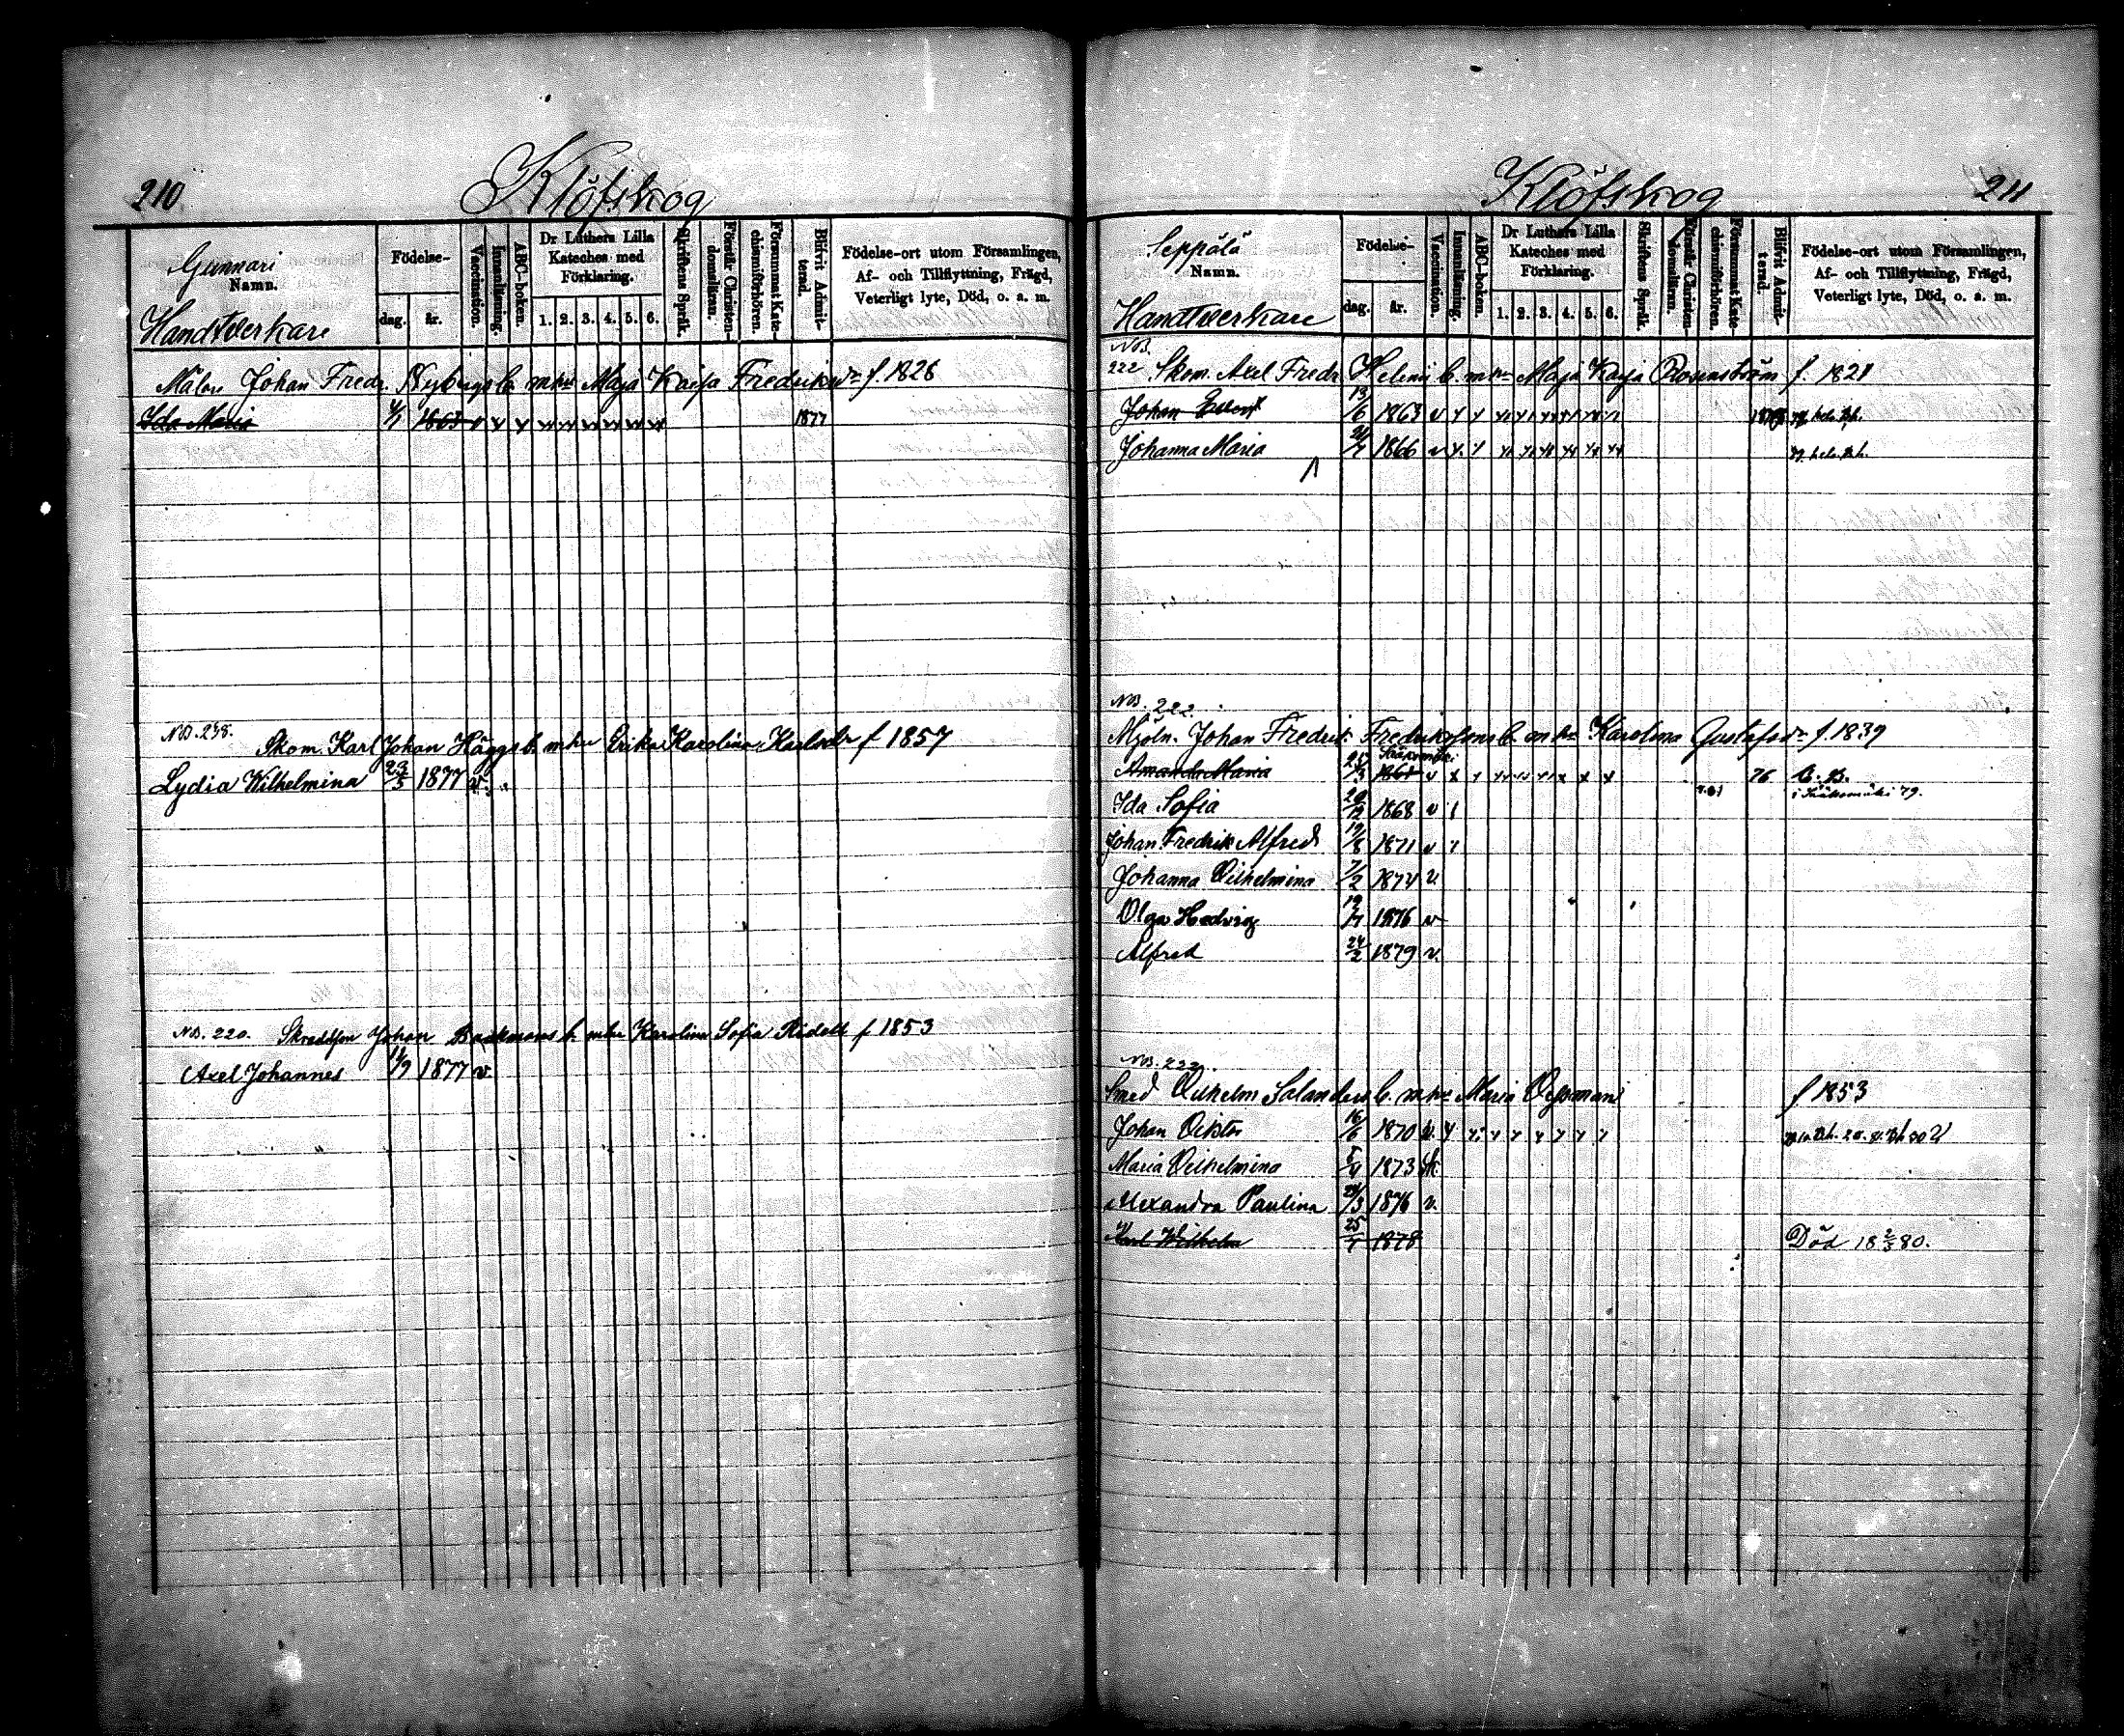 210
Klöfskog
Gunnari
Namn.
Handtverkare
Födelse-
dag.
år.
Vaccination.
Innanläsning.
ABC-boken.
Dr Luthers Lilla Kateches med Förklaring.
1. 2. 3. 4. 5. 6.
Skriftens Språk.
Förstår Christendomsläran.
Försummat Katechismiförhören.
Blifvit Admitterad.
Födelse-ort utom Församlingen,
Af- och Tillflyttning, Frägd,
Veterligt lyte, Död, o. a. m.
Målare Johan Fredr. Nybergs b. m. hu Maja Kajsa Fredriksdr f. 1826
Ida Maria 1863 v 1877
NB. 238.
Skom. Karl Johan Häggs b. m hu Erika Karolina Karlsdr f 1857
Lydia Wilhelmina 23/3 1877 v.
NB. 220. Skraddson Johan Backmans b. m hu Karolina Sofia Ridell f 1853
Axel Johannes 1877 v
Klöfskog
211
Seppälä
Namn.
Handtverkare
Födelse-
dag.
år.
Vaccination.
Innanläsning.
ABC-boken.
Dr Luthers Lilla Kateches med Förklaring.
1. 2. 3. 4. 5. 6.
Skriftens Språk.
Förstår Christendomsläran.
Försummat Katechismiförhören.
Blifvit Admitterad.
Födelse-ort utom Församlingen,
Af- och Tillflyttning, Frägd,
Veterligt lyte, Död, o. a. m.
NB.
222 Skom. Axel Fredr Helenii b. m hu Maja Kajsa Rosenström f. 1821
Johan 13/6 1863 v
Johanna Maria 1866 v
NB. 222.
Mjöln. Johan Fredrik Fredrikssons b. m hu Karolina Gustafsdr f. 1839
Amanda Maria 1861 v 76
i Sääksmäki 79.
Ida Sofia 1868 v
Johan Fredrik Alfred 19/8 1871 v
Johanna Vilhelmina 7/2 1874 v.
Olga Hedvig 1876 v
Alfred 24/2 1879 v.
NB. 222.
Smed Vilhelm Salanders b. m hu Maria f 1853
Johan Viktor 16/6 1870 v.
Maria Vilhelmina 1873
Alexandra Paulina 1876 v.
Karl Wilhelm 1878 Död 18 2/3 80.